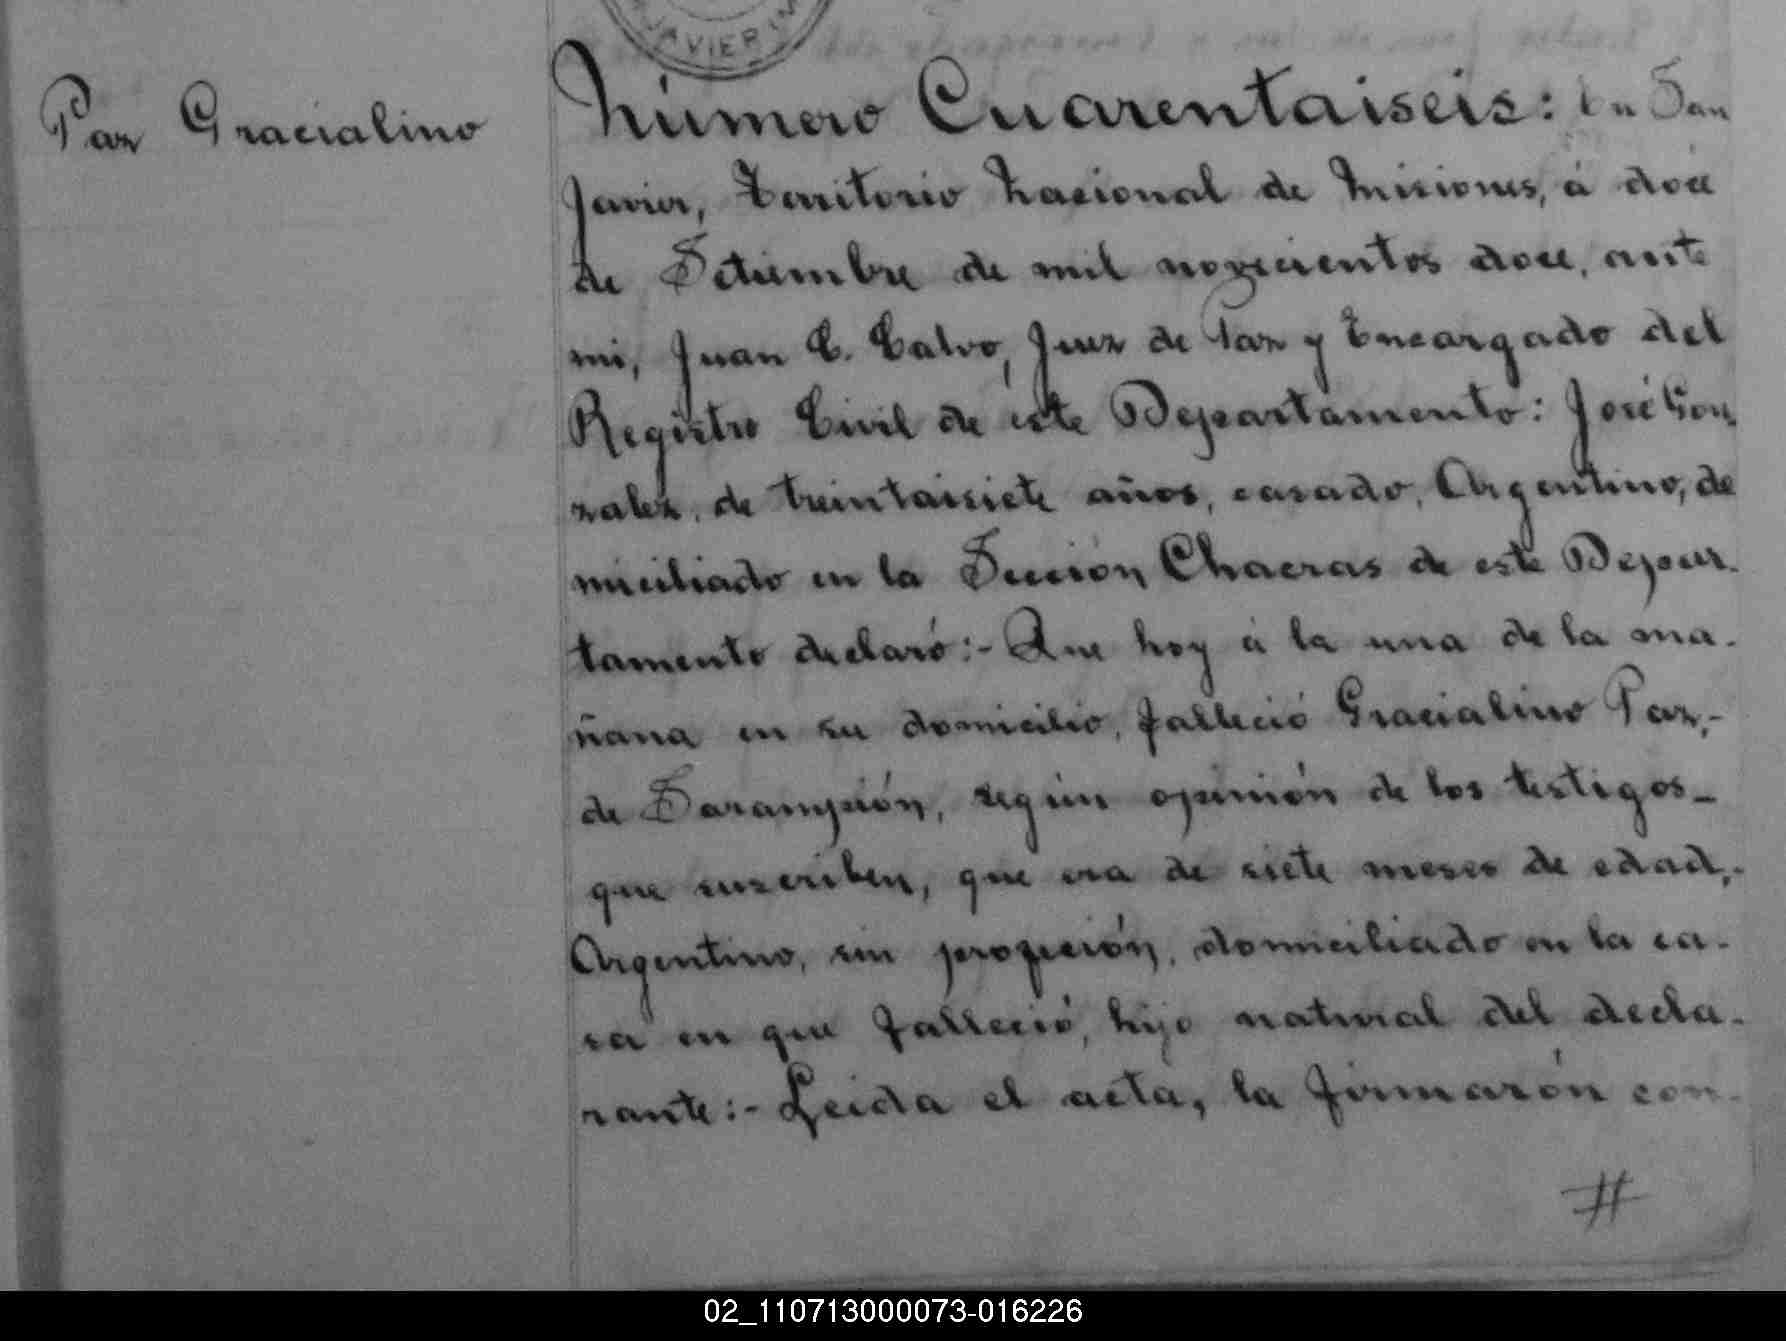 JAVIER
Paz Gracialino
Número Cuarentaiseis: En San
Javier, Territorio Nacional de Misiones, á doce
de Setiembre de mil novecientos doce, ante
mi, Juan C. Calvo, Juez de Paz y Encargado del
Registro Civil de éste Departamento: José Gon-
zalez, de treintaisiete años, casado, Argentino, do
miciliado en la Sección Chacras de este Depar-
tamento declaró:- Que hoy á la una de la ma-
ñana en su domicilio, falleció Gracialino Paz,-
de Sarampión, según opinión de los testigos-
que suscriben, que era de siete meses de edad,-
Argentino, sin profeción, domiciliado en la ca-
sa en que falleció, hijo natural del decla-
rante:- Leida el acta, la firmarón con-
#
02_110713000073-016226